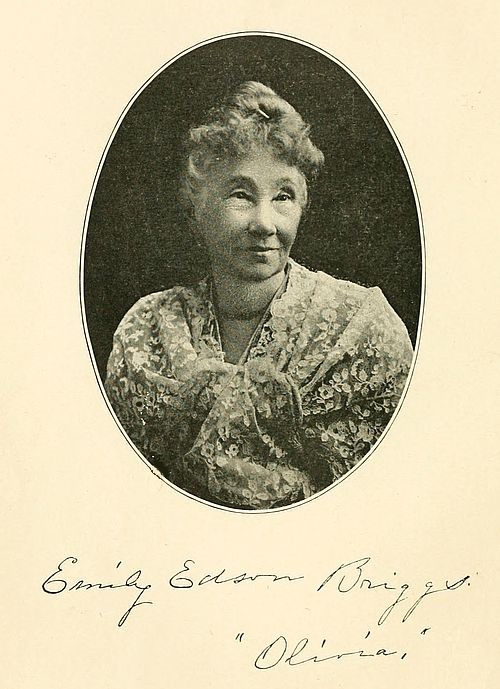 Emily Edson Briggs.
"Olivia,"